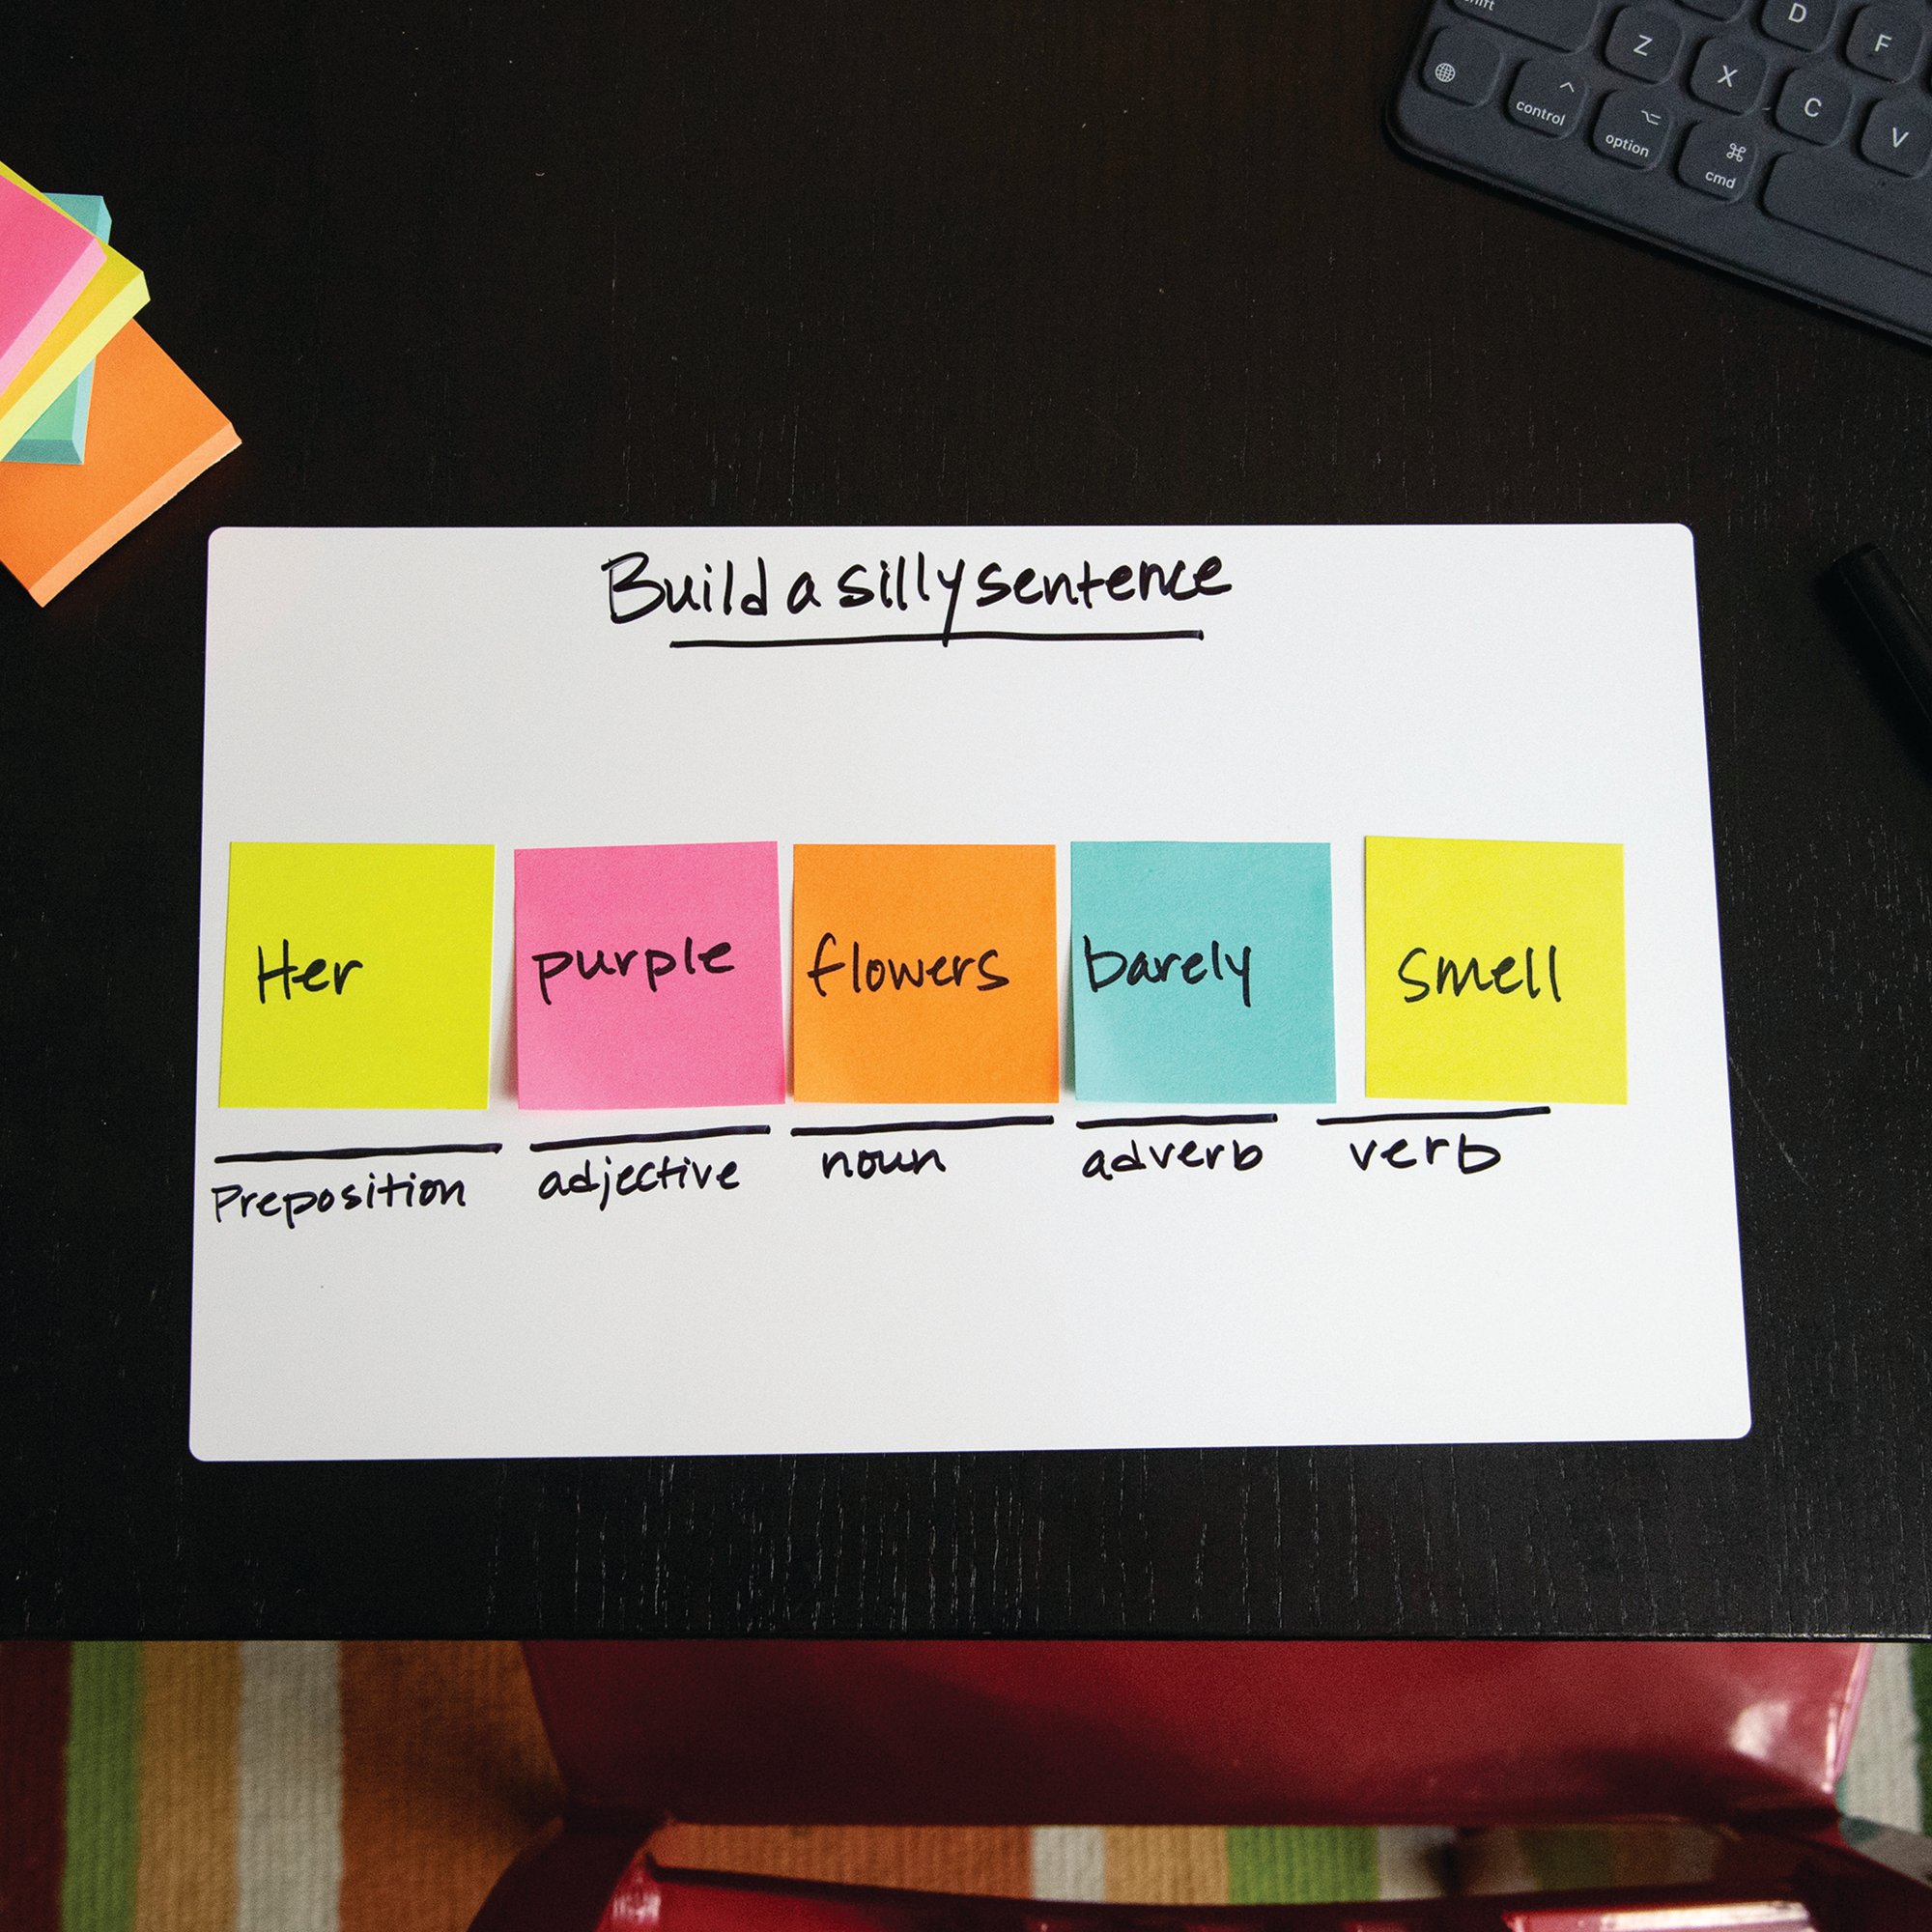 shift
Z
X
D
F
C
V
control
option
cmd
Build a silly sentence
Her purple flowers barely smell
Preposition adjective noun adverb verb